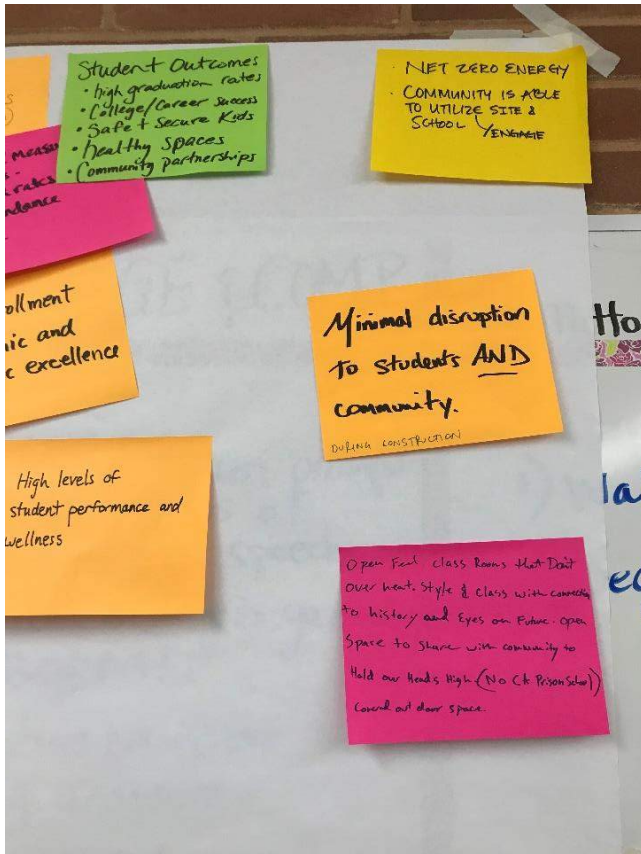 Student Outcomes
• high graduation rates
• College/Career Success
• Safe + Secure Kids
• healthy spaces
• Community partnerships
• NET ZERO ENERGY
• COMMUNITY IS ABLE
TO UTILIZE SITE &
SCHOOL
ENGAGE
Minimal disruption
to students AND
community.
DURING CONSTRUCTION
High levels of
student performance and
wellness
Open Feel class Rooms that Don't
over heat. Style & Class with connection
to history and Eyes on Future. open
Space to Share with community to
Hold our Heads High (No Prison School)
Coverd out door space
ollment
ic and
c excellence
measu
rates
ndance
Ho
la
ec